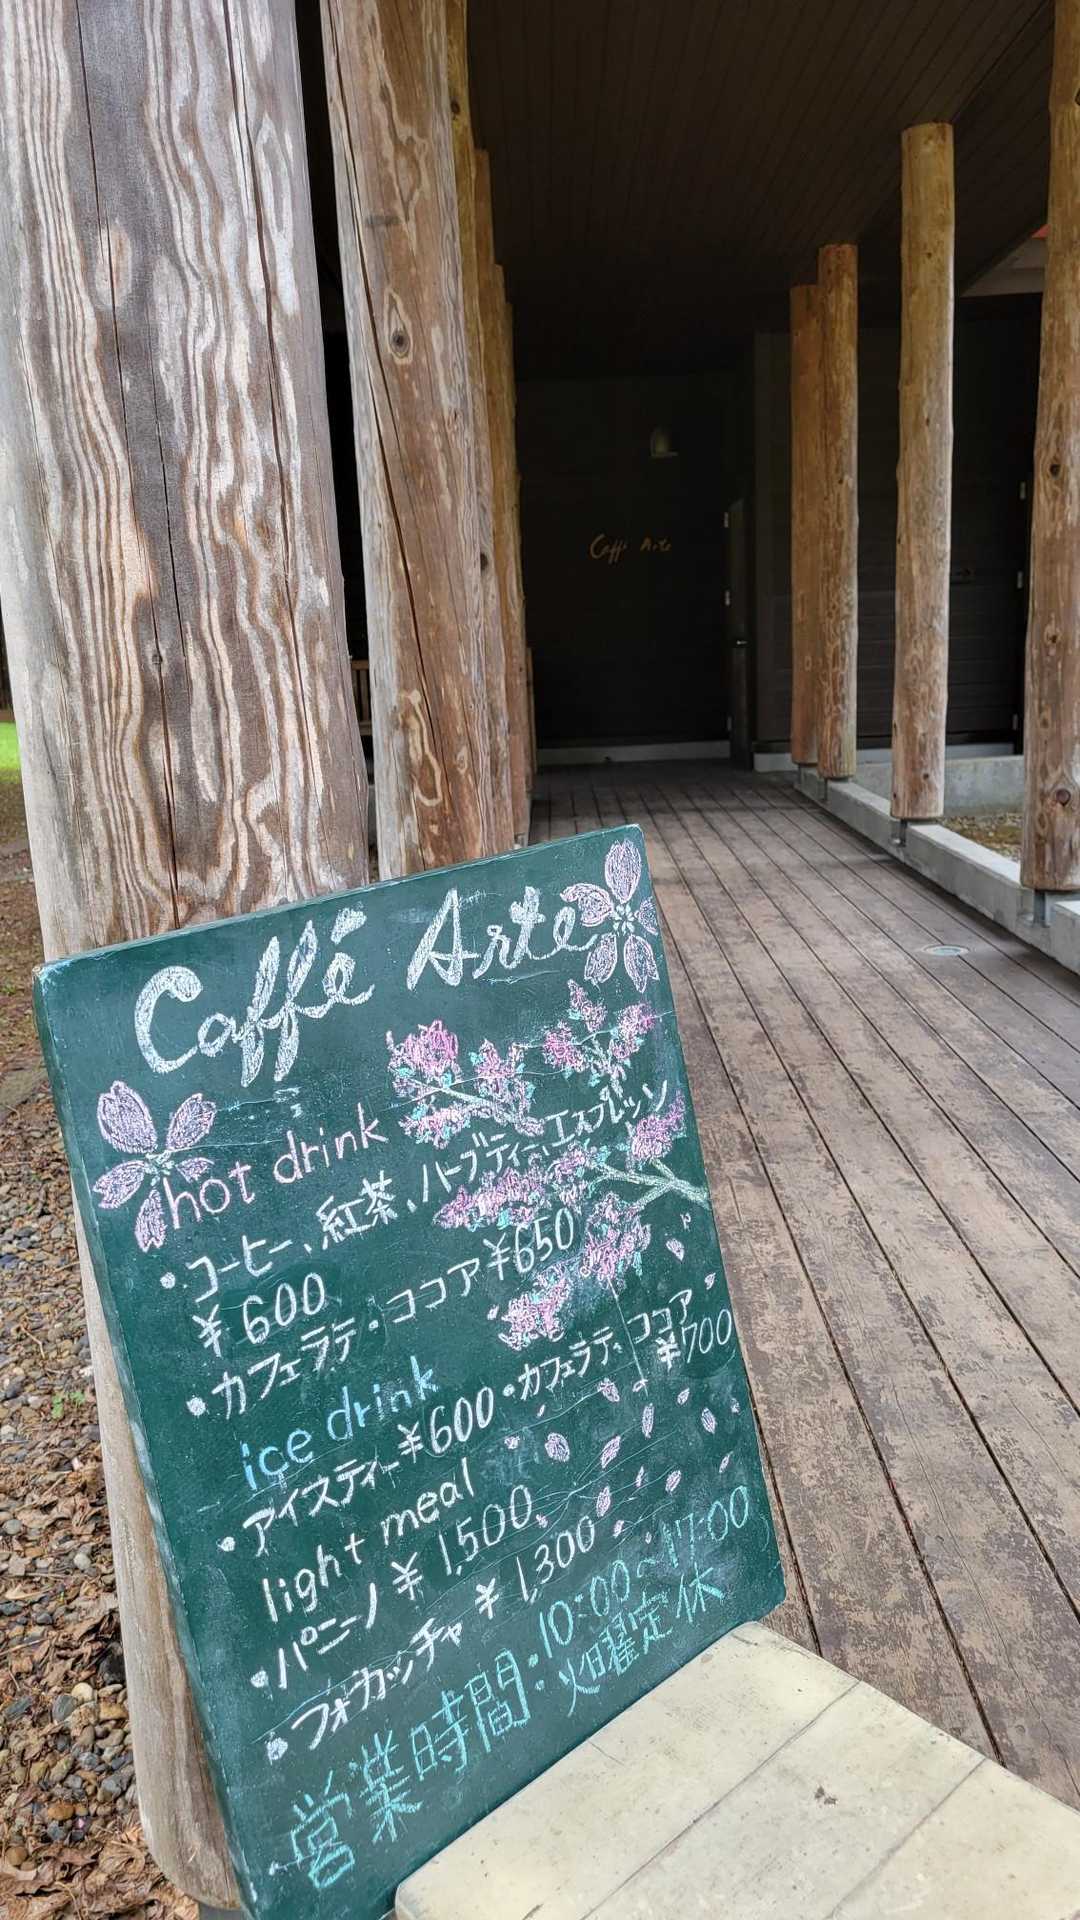 Caffé Arte
Caffé Arte
hot drink
・コーヒー、紅茶、ハーブティー、エスプレッソ
¥600
・カフェラテ・ココア ¥650
ice drink
・アイスティー ¥600 ・カフェラテ、ココア
¥700
light meal
・パニーノ ¥1,500
・フォカッチャ ¥1,300
営業時間・10:00~17:00
火曜定休